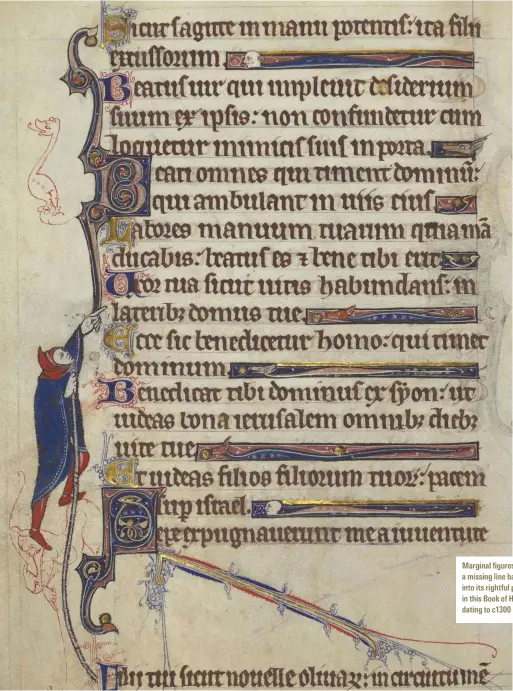 Sicut sagitte in manu potentis: ita filii
excussorum.
Beatus uir qui impleuit desiderium
suum ex ipsis: non confundetur cum
loquetur inimicis suis in porta.
Beati omnes qui timent dominū:
qui ambulant in uiis eius.
Labores manuum tuarum quia mā
ducabis: beatus es ⁊ bene tibi erit
Uxor tua sicut uitis habundans: in
lateribꝫ domus tue.
Ecce sic benedicetur homo: qui timet
dominum.
Benedicat tibi dominus ex syon: ut
uideas bona ierusalem omnibꝫ diebꝫ
uite tue
Et uideas filios filiorum tuoꝝ: pacem
suꝑ israel.
Sepe expugnauerunt me a iuuentute
Filii tui sicut nouelle oliuaꝝ: in circuitu mē
Marginal figures
a missing line ba
into its rightful p
in this Book of H
dating to c1300